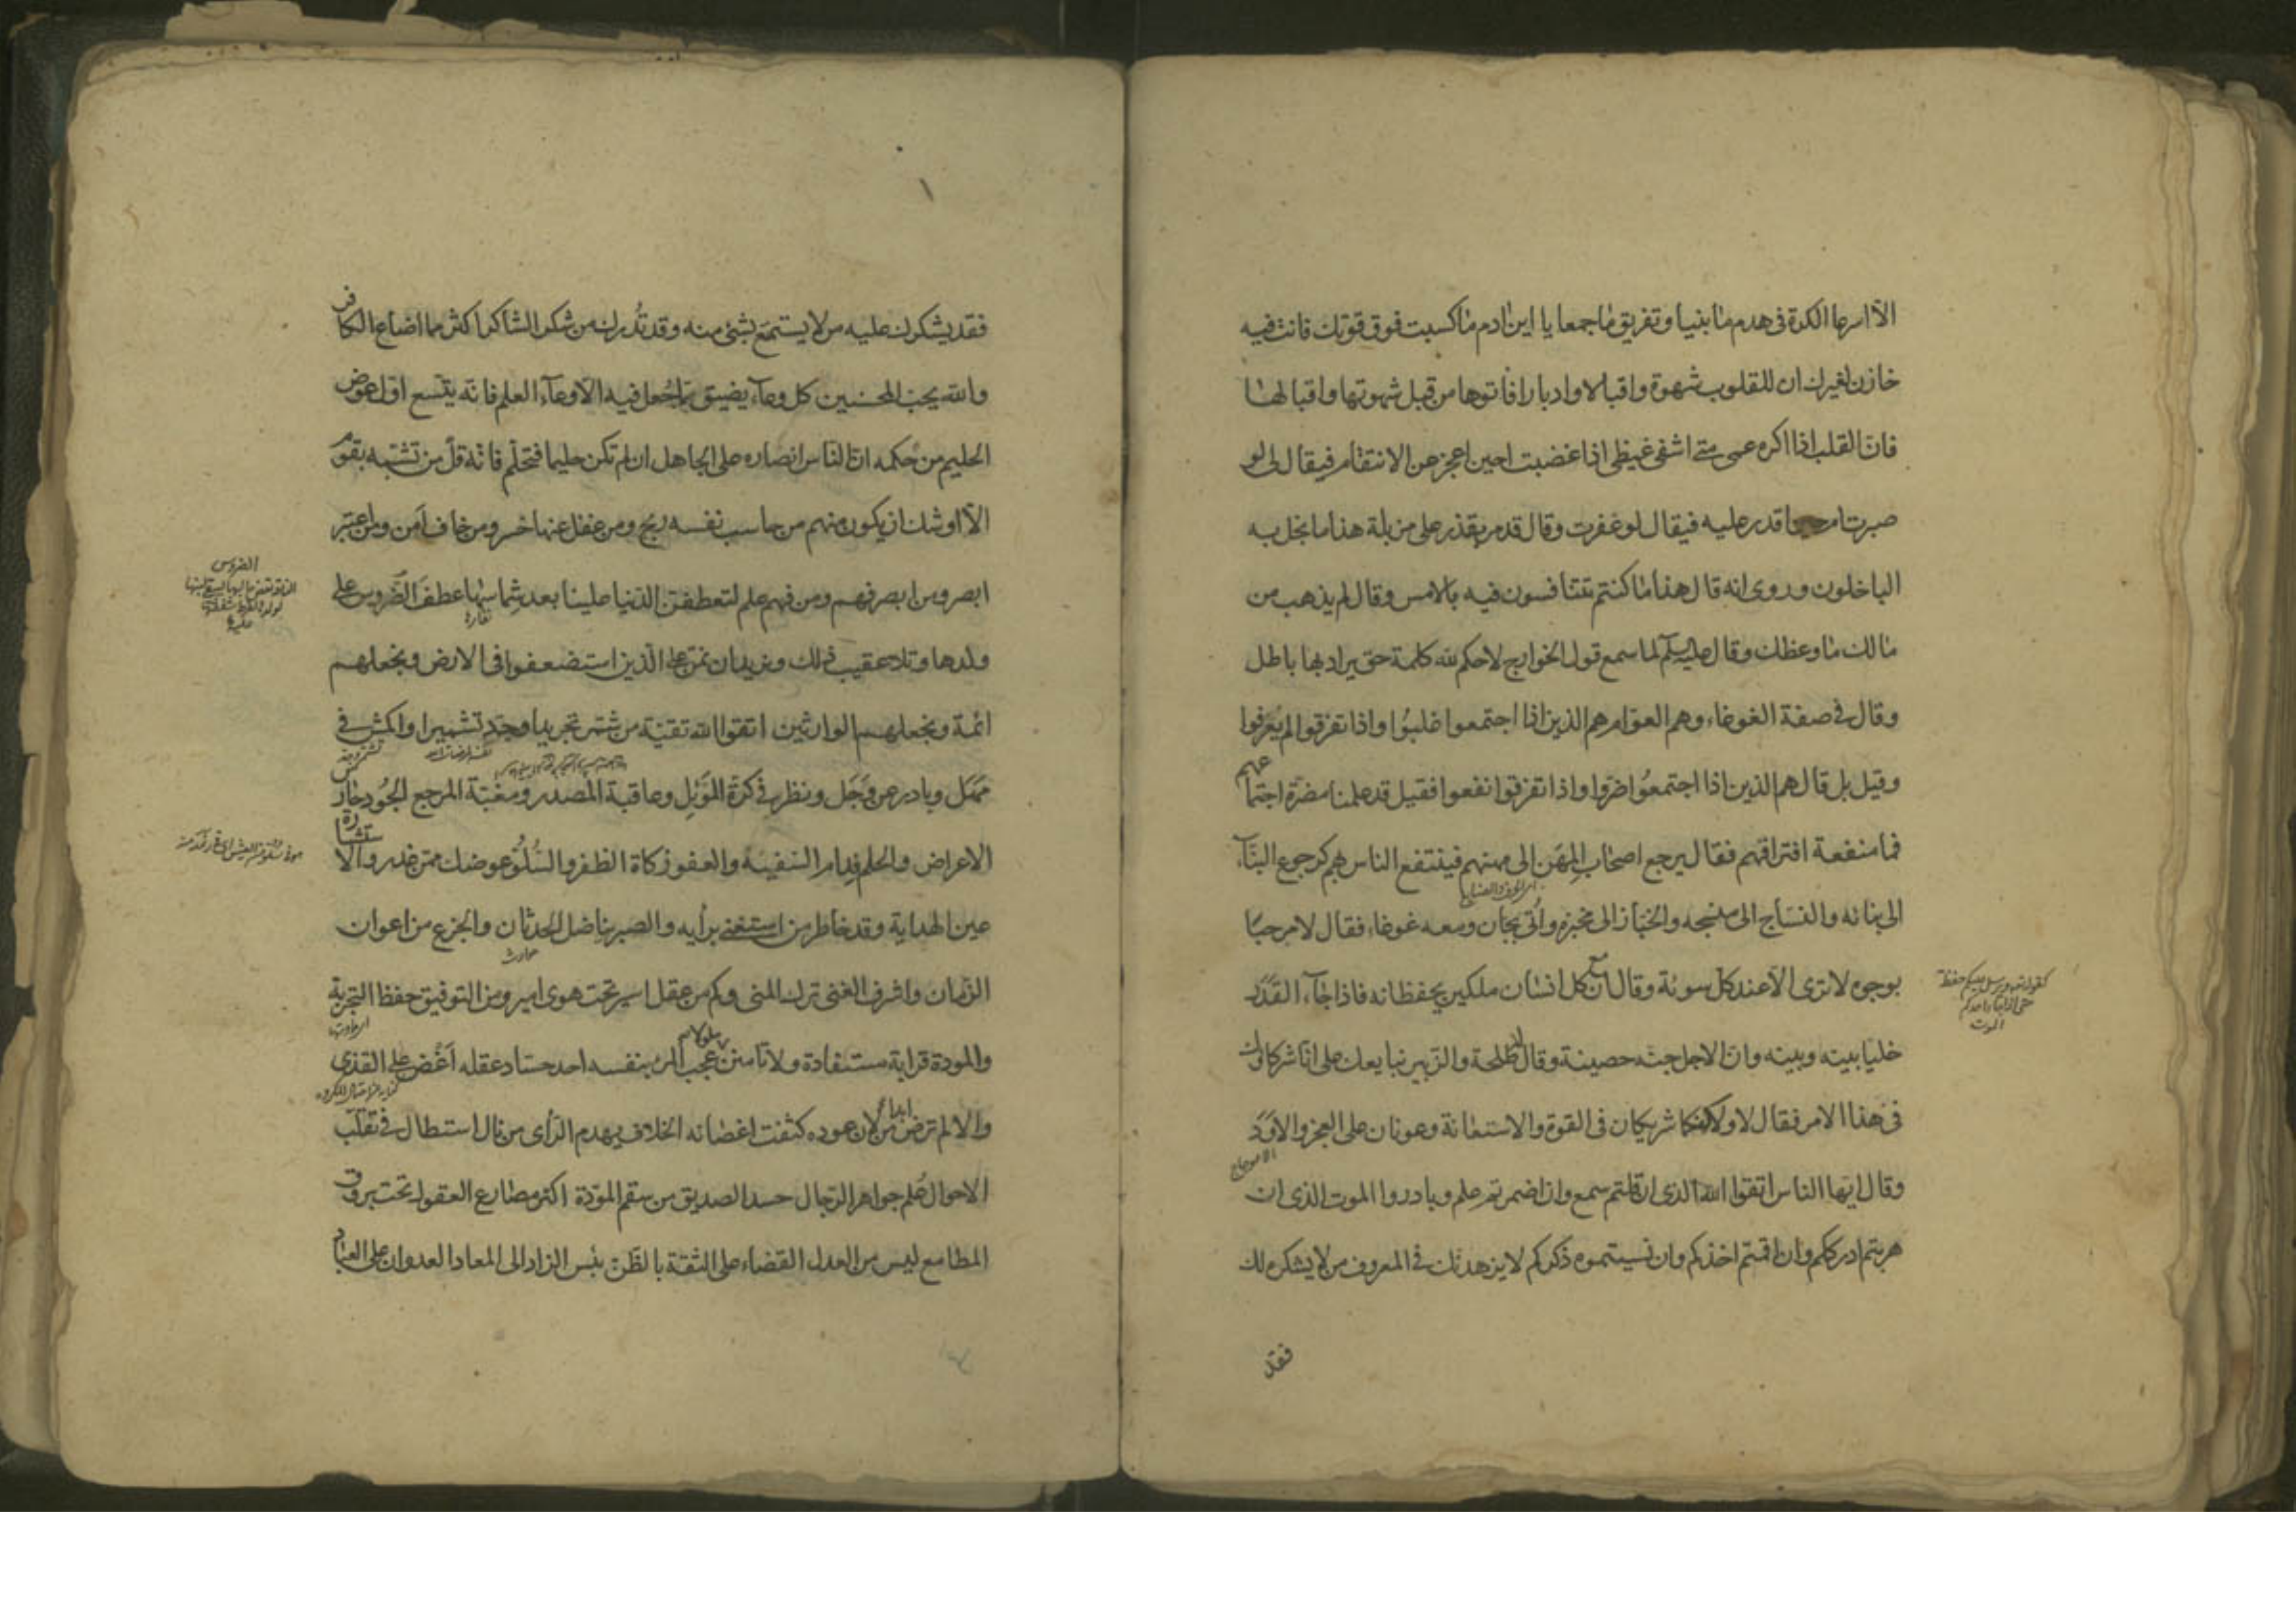 الا اسرعا الكرة فى هدم ما بنيا وتفريق ما جمعا يا ابن ادم ما كسبت فوق قوتك فانت فيه
خازن لغيرك ان للقلوب شهوة واقبالا وادبارا فاتوها من قبل شهوتها واقبالها
فان القلب اذا اكره عمى متى اشفى غيظى اذا غضبت احين اعجز عن الانتقام فيقال لى لو
صبرت ام حين اقدر عليه فيقال لو غفرت وقال قد مر بقذر على مزبلة هذا ما بخل به
الباخلون وروى انه قال هذا ما كنتم تتنافسون فيه بالامس وقال لم يذهب من
مالك ما وعظك وقال عليه السلم لما سمع قول الخوارج لا حكم الا لله كلمة حق يراد بها باطل
وقال فى صفة الغوغاء وهم العوام هم الذين اذا اجتمعوا غلبوا واذا تفرقوا لم يعرفوا
وقيل بل قال هم الذين اذا اجتمعوا ضروا واذا تفرقوا نفعوا فقيل قد علمنا مضرة اجتما
عهم
فما منفعة افتراقهم فقال يرجع اصحاب المهن الى مهنهم فينتفع الناس بهم كرجوع البناء
الى بنائه والنساج الى منسجه والخباز الى مخبزه واتى بجان ومعه غوغاء فقال لا مرحبا
بوجوه لا ترى الا عند كل سوئة وقال ان مع كل انسان ملكين يحفظانه فاذا جاء القدر
خليا بينه وبينه وان الاجل جنة حصينة وقال لما قال طلحة والزبير نبايعك على انا شركاوك
فى هذا الامر فقال لا ولكنكما شريكان فى القوة والاستعانة وعونان على العجز والاود
الاعوجاج
وقال ايها الناس اتقوا الله الذى ان قلتم سمع وان اضمرتم علم وبادروا الموت الذى ان
هربتم ادرككم وان اقمتم اخذكم وان نسيتموه ذكركم لا يزهدنك فى المعروف من لا يشكره لك
فقد
حتى اذا جاء احدكم
الموت
فقد يشكرك عليه من لا يستمتع بشئ منه وقد تدرك من شكر الشاكر اكثر مما اضاع الكافر
والله يحب المحسنين كل وعاء يضيق بما جعل فيه الا وعاء العلم فانه يتسع اول عوض
الحليم من حكمه ان الناس انصاره على الجاهل ان لم تكن حليما فتحلم فانه قل من تشبه بقوم
الا اوشك ان يكون منهم من حاسب نفسه ربح ومن غفل عنها خسر ومن خاف امن ومن اعتبر
ابصر ومن ابصر فهم ومن فهم علم لتعطفن الدنيا علينا بعد شماسها عطف الضروس على
ولدها وتلا عقيب ذلك ونريد ان نمن على الذين استضعفوا فى الارض ونجعلهم
ائمة ونجعلهم الوارثين اتقوا الله تقية من شمر تجريدا وجد تشميرا واكمش فى
مهل وبادر عن وجل ونظر فى كرة الموئل وعاقبة المصدر ومغبة المرجع الجود حارس
الاعراض والحلم فدام السفيه والعفو زكاة الظفر والسلو عوضك ممن غدر والا
ستشارة
عين الهداية وقد خاطر من استغنى برايه والصبر يناضل الحدثان والجزع من اعوان
حوادث
الزمان واشرف الغنى ترك المنى وكم من عقل اسير تحت هوى امير ومن التوفيق حفظ التجربة
والمودة قرابة مستفادة ولا تامنن ملولا عجب المرء بنفسه احد حساد عقله اغض على القذى
والا لم ترض ابدا من لان عوده كثفت اغصانه الخلاف يهدم الراى من نال استطال فى تقلب
الاحوال علم جواهر الرجال حسد الصديق من سقم المودة اكثر مصارع العقول تحت بروق
المطامع ليس من العدل القضاء على الثقة بالظن بئس الزاد الى المعاد العدوان على العباد
الضروس